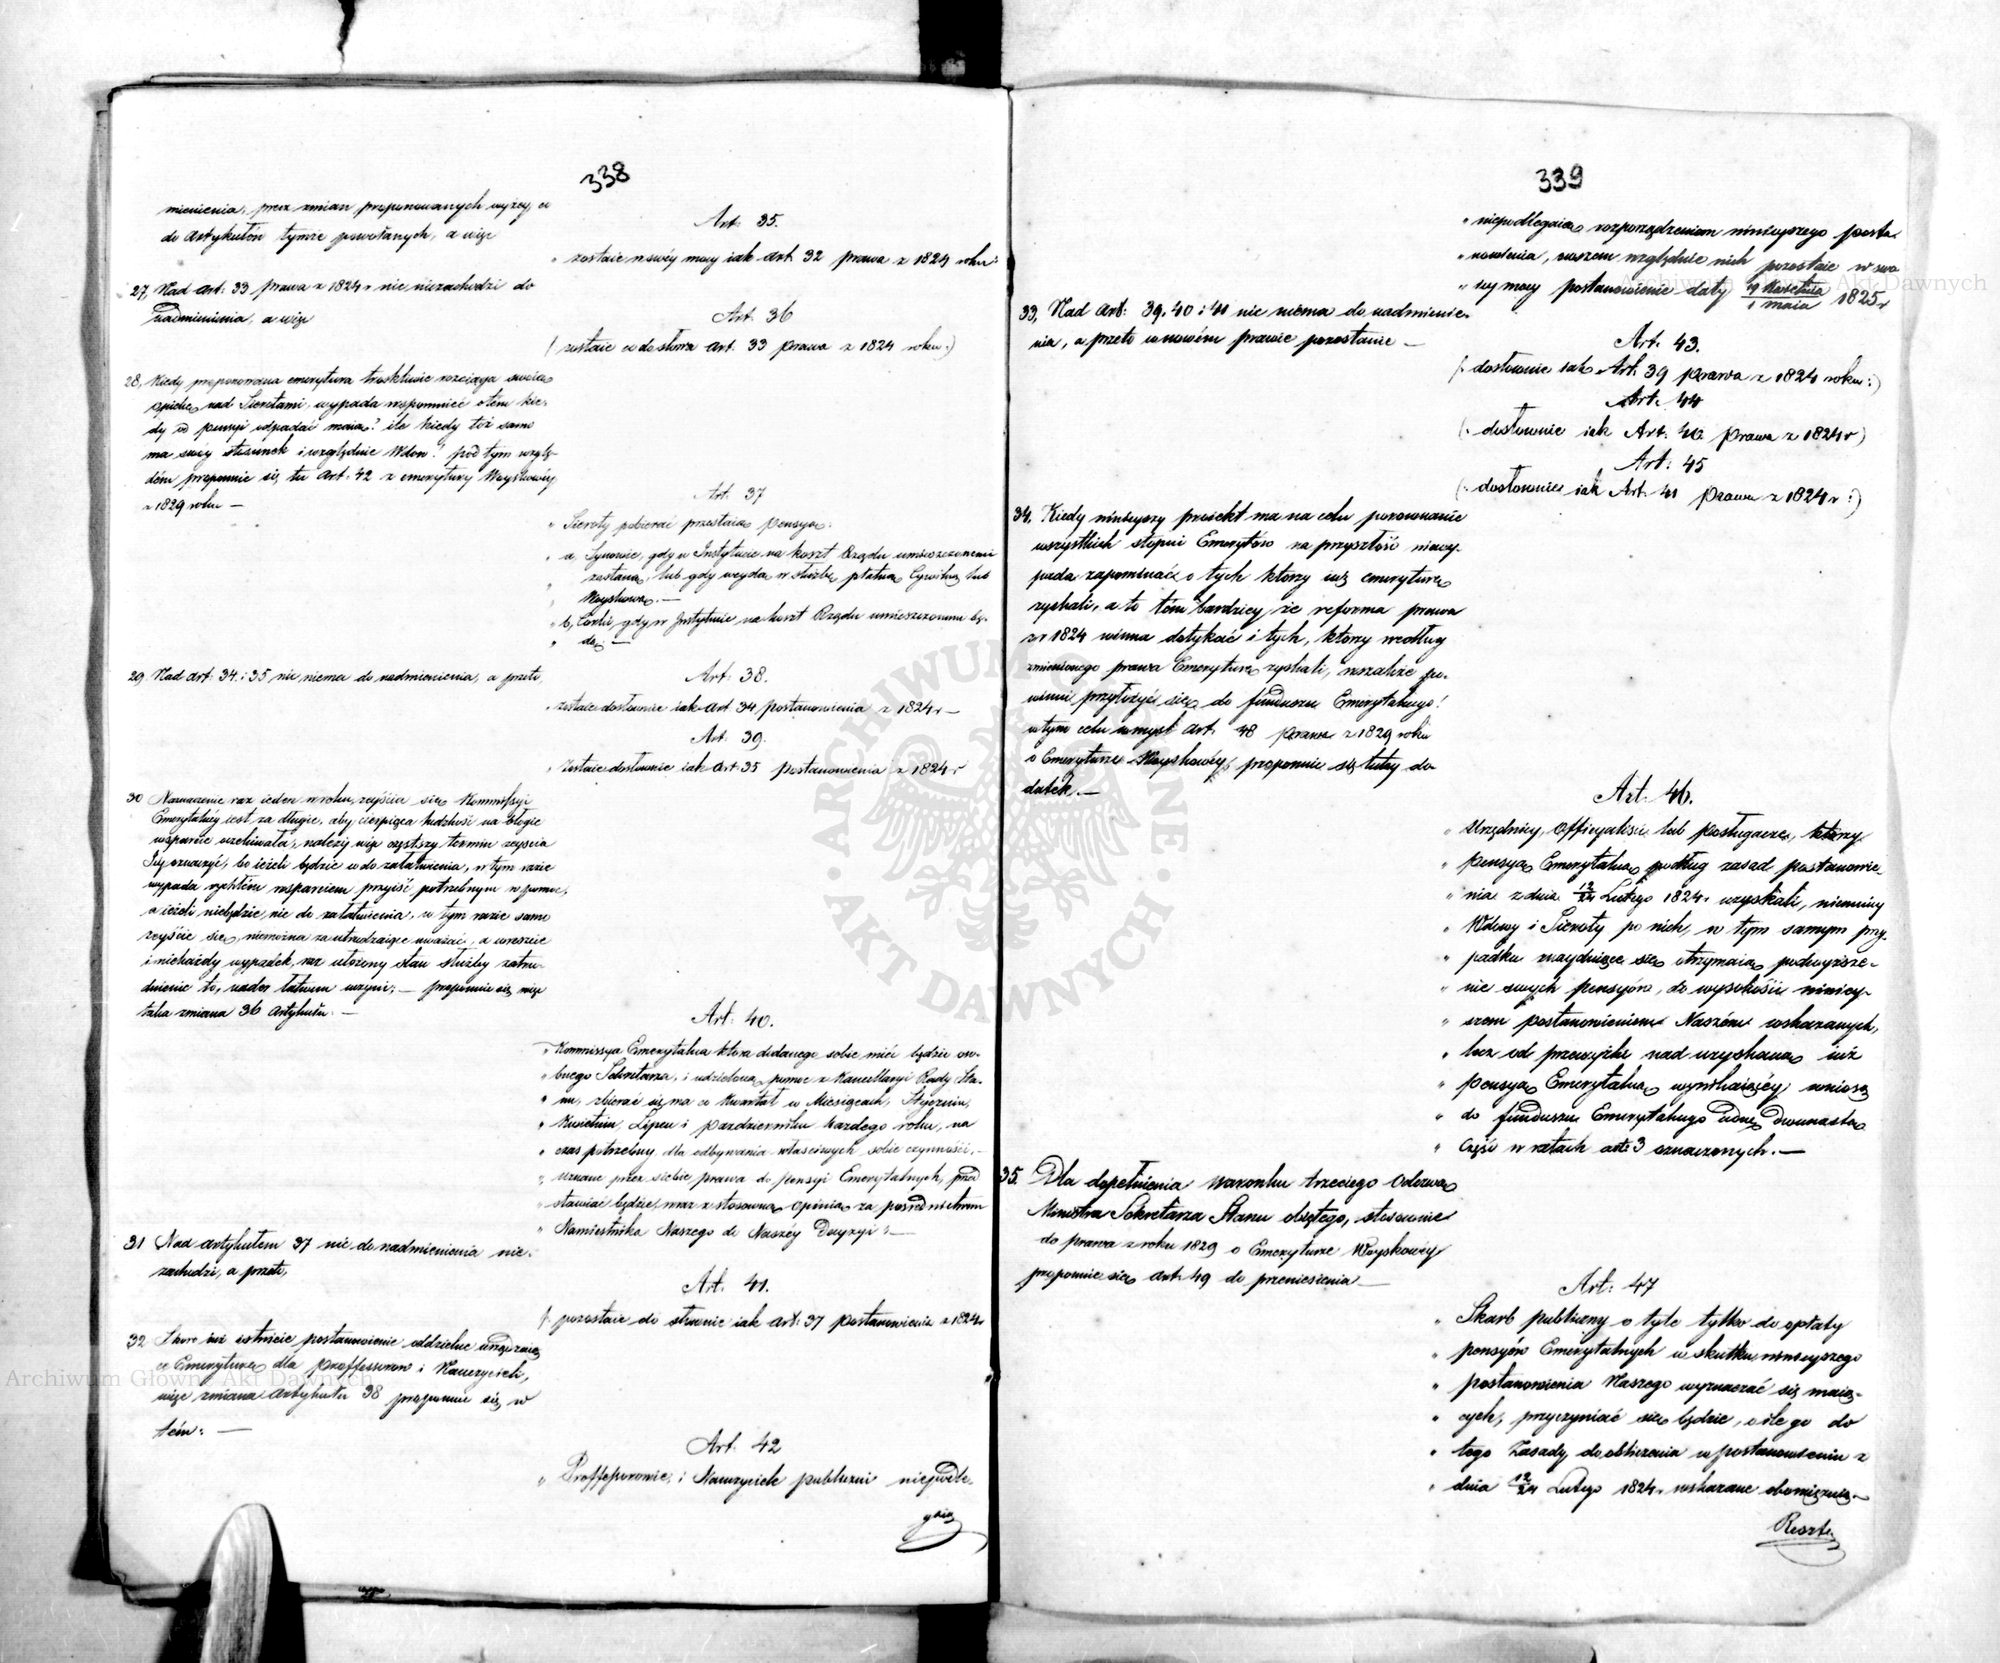 338
mienienia, prócz zmian proponowanych wyżey, co
do Artykułów tymże powołanych, a więc
Art: 35.
„ zostaie w swéy mocy iak Art 32 prawa z 1824 roku:
27, Nad Art: 33 prawa z 1824 r nic niezachodzi do
nadmienienia, a więc
Art. 36
(: zostaie co do słowa Art. 33 prawa z 1824 roku:)
28, Kiedy proponowana emerytura troskliwie rozciąga swoią
opiekę nad Sierotami, wypada wspomnieć o tém kie-
dy od pensyi odpadać maią? ile kiedy toż samo
ma swóy stosunek i względnie Wdow! pod tym wzglę-
dém proponuie się tu Art: 42 z emerytury Woyskowéy
z 1829 roku —
Art 37
„ Sieroty pobierać przestaią pensyą:
„ a, Synowie, gdy w Instytucie na koszt Rządu umieszczonemi
„ zostaną, lub gdy weydą w służbę płatną Cywilną lub
„ Woyskową. —
„ b, Córki, gdy w Instytucie na koszt Rządu umieszczonemi bę-
„ dą; —
29. Nad Art: 34. i 35 nic niema do nadmienienia, a przeto,
Art: 38.
„ zostaie dosłownie iak Art 34 postanowienia z 1824 r —
Art. 39.
„ Zostaie dosłownie iak Art: 35 postanowienia z 1824 r
30 Naznaczenie raz ieden w roku, zeyścia się Kommissyi
Emerytalnéy iest za długie, aby cierpiąca ludzkość na błogie
wsparcie oczekiwała, należy więc częstszy termin zeyścia
Jéy oznaczyć, bo ieżeli będzie co do załatwienia, w tym razie
wypada rychłém wsparciem przyiść potrzebnym w pomoc,
a ieżeli niebędzie nic do załatwienia, w tym razie samo
zeyście się, niemożna za utrudzaiące uważać, a wreszcie
i niekażdy wypadek, raz ułożony stan służby zatru-
dnienie to, nader łatwem uczyni; — proponuie się więc
taka zmiana 36 Artykułu. —
Art: 40.
„ Kommissya Emerytalna która dodanego sobie mieć będzie oso-
„ bnego Sekretarza, i udzieloną pomoc z Kancellaryi Rady Sta-
„ nu, zbierać się ma co Kwartał w Miesiącach, Styczniu,
„ Kwietniu, Lipcu i Pazdzierniku każdego roku, na
„ czas potrzebny dla odbywania właściwych sobie czynności. —
„ uznane przez siebie prawa do pensyi Emerytalnych, przed
„ stawiać będzie, wraz z stosowną opinią za posrednictwem
„ Namiestnika Naszego do Naszéy Decyzyi: —
31 Nad artykułem 37 nic do nadmienienia nie-
zachodzi, a przeto,
Art. 41.
(: pozostaie do słownie iak Art: 37 postanowienia z 1824 r
32 Skoro iuż istnieie postanowienie oddzielne urządzaią
ce Emeryturę dla Proffessorow i Nauczycieli,
więc zmiana Artykułu 38 proponuie się w
tém: —
Art: 42
„ Proffessorowie, i Nauczyciele publiczni niepodle-
gaią
339
„ niepodlegaią rozporządzeniom ninieyszego posta-
„ nowienia, owszem względnie nich pozostaie w swo
„ iey mocy postanowienie daty 19 Kwietnia / 1 Maia 1825 r
33, Nad Art: 39. 40 i 41 nic niéma do nadmienie-
nia, a przeto w nowém prawie pozostanie —
Art. 43.
(: dosłownie iak Art: 39 prawa z 1824 roku:)
Art. 44
(: dosłownie iak Art: 40 prawa z 1824 r)
Art: 45
(: dosłownie iak Art. 41 prawa z 1824 r:)
34, Kiedy ninieyszy proiekt ma na celu porównanie
wszystkich stopni Emerytów na przyszłość niewy-
pada zapominać o tych ktorzy iuż emeryturę
zyskali, a to tém bardziey że reforma prawa
z r 1824 winna dotykać i tych, ktorzy według
zmienionego prawa Emeryturę zyskali, wszakże po-
winni przyłożyć się do funduszu Emerytalnego!
w tym celu w myśl Art. 48 prawa z 1829 roku
o Emeryturze Woyskowéy, proponuie się tutay do
datek. —
Art. 46.
„ Urzędnicy, Officyaliści lub Posługacze, którzy
„ pensyą Emerytalną podług zasad postanowie-
„ nia z dnia 12/24 Lutego 1824 r uzyskali, niemniey
„ Wdowy i Sieroty po nich, w tym samym przy-
„ padku znayduiące się otrzymaią podwyższe-
„ nie swych pensyów, do wysokości niniey-
„ szem postanowieniem Naszém wskazanych,
„ lecz od przewyżki nad uzyskaną iuż
„ pensyą Emerytalną wynikaiącéy, wniosą
„ do funduszu Emerytalnego iedną dwunastą
„ część w ratach art: 3 oznaczonych. —
35. Dla dopełnienia warunku trzeciego Odezwą
Ministra Sekretarza Stanu obiętego, stosownie
do prawa z roku 1829 o Emeryturze Woyskowéy
proponuie się Art. 49 do przeniesienia —
Art: 47
„ Skarb publiczny o tyle tylko do opłaty
„ pensyów Emerytalnych w skutku ninieyszego
„ postanowienia Naszego wyznaczać się maią-
„ cych, przyczyniać się będzie, o ile go do
„ tego Zasady do obliczenia w postanowieniu z
„ dnia 12/24 Lutego 1824 r wskazane obowięzuią —
Reszta
Archiwum Główne Akt Dawnych
Archiwum Główne Akt Dawnych
ARCHIWUM GŁÓWNE
· AKT DAWNYCH ·